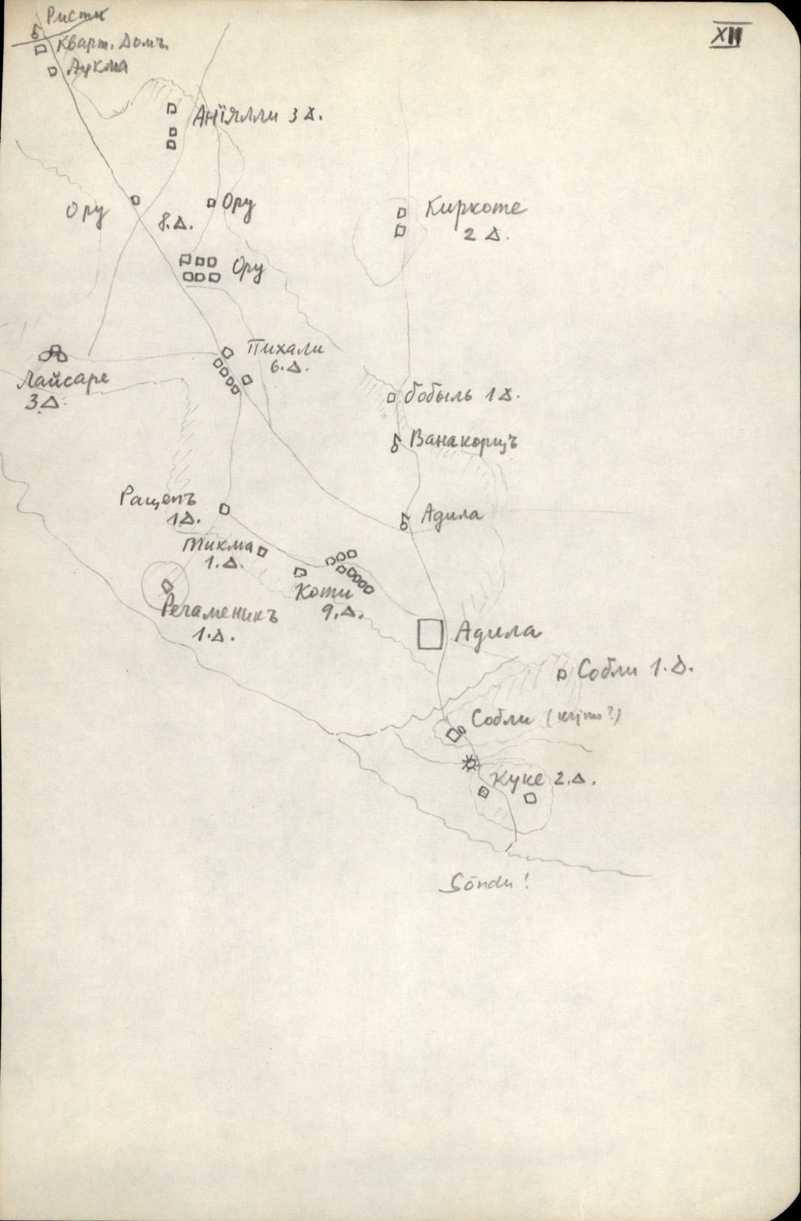 XII
Ристи
Кварт. Домъ.
Лукма
Анїялли 3 Д.
Ору
Ору
8.Д.
Киркоте
2 Д.
Ору
Пихали
6.Д.
Лайсаре
3 Д.
бобыль 1 Д.
Ванакорщъ
Ращепъ
1 Д.
Адила
Тикма
1.Д.
Коти
9.Д.
Речаменикъ
1.Д.
Адила
Собли 1.Д.
Собли
Куке 2.Д.
Sõndu!